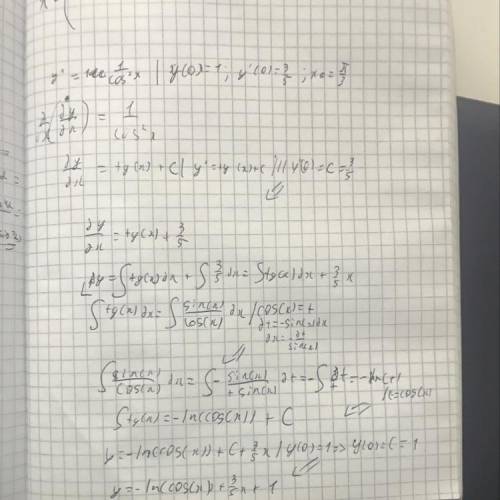 y' = 1/cos²x | y(0)=1; y'(0)=3/5; x0=π/3
∂/∂x (∂y/∂x) = 1/cos²x
∂y/∂x = tg(x) + C | y'=tg(x)+C ||| y'(0)=C=3/5
∂y/∂x = tg(x) + 3/5
∫∂y=∫tg(x)∂x + ∫3/5 ∂x = ∫tg(x)∂x + 3/5 x
∫tg(x)∂x = ∫ sin(x)/cos(x) ∂x | cos(x)=t
∂t=-sin(x)∂x
∂x=-∂t/sin(x)
∫ sin(x)/cos(x) ∂x = ∫- sin(x)/t sin(x) ∂t = -∫ ∂t/t = -ln(t)
|t=cos(x)
∫tg(x) = -ln(cos(x)) + C
y=-ln(cos(x)) + C + 3/5 x | y(0)=1 => y(0)=C=1
y=-ln(cos(x))+3/5 x + 1